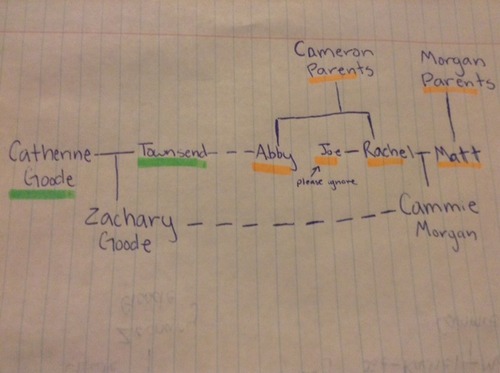 Cameron
Parents
Morgan
Parents
Catherine
Goode
Townsend
Abby
Joe
Rachel
Matt
please ignore
Zachary
Goode
Cammie
Morgan